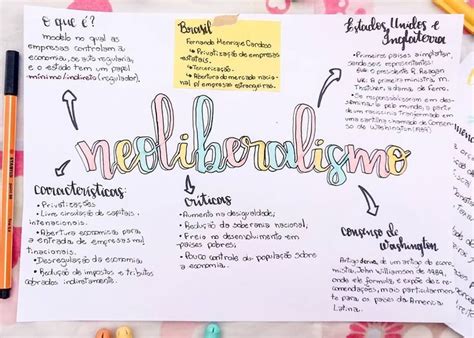 O que é?
modelo no qual as
empresas controlam a
economia, se auto regularia,
e o estado tem um papel
mínimo/indireto (regulador).
Brasil
Fernando Henrique Cardoso
↳ Privatização de empresas
estatais.
↳ Terceirização.
↳ Abertura do mercado nacio-
nal p/ empresas estrangeiras.
Estados Unidos e
Inglaterra
• Primeiros países a implantar,
sendo seus representantes:
EUA: o presidente R. Reagan
UK: A primeira ministra M.
Thatcher, a dama de ferro.
• Se responsabilizaram em des-
seminar-lo pelo mundo, a partir
de um raciocínio transformado em
uma cartilha chamada de Consenso
de Washington (1989)
neoliberalismo
características:
• Privatizações
• Livre circulação de capitais
internacionais.
• Abertura econômica para
a entrada de empresas mul
tinacionais.
• Desregulação da economia
• Redução de impostos e tributos
cobrados indiretamente.
críticas
• Aumento na desigualdade;
• Redução da soberania nacional,
• Freio no desenvolvimento em
países pobres;
• Pouco controle da população sobre
a economia.
Consenso de
Washington
Artigo deriva, de um artigo do econo
mista, John Williamson de 1989,
onde ele formula e expõe dez re-
comendações, mais particularmente
para os países da América
Latina.